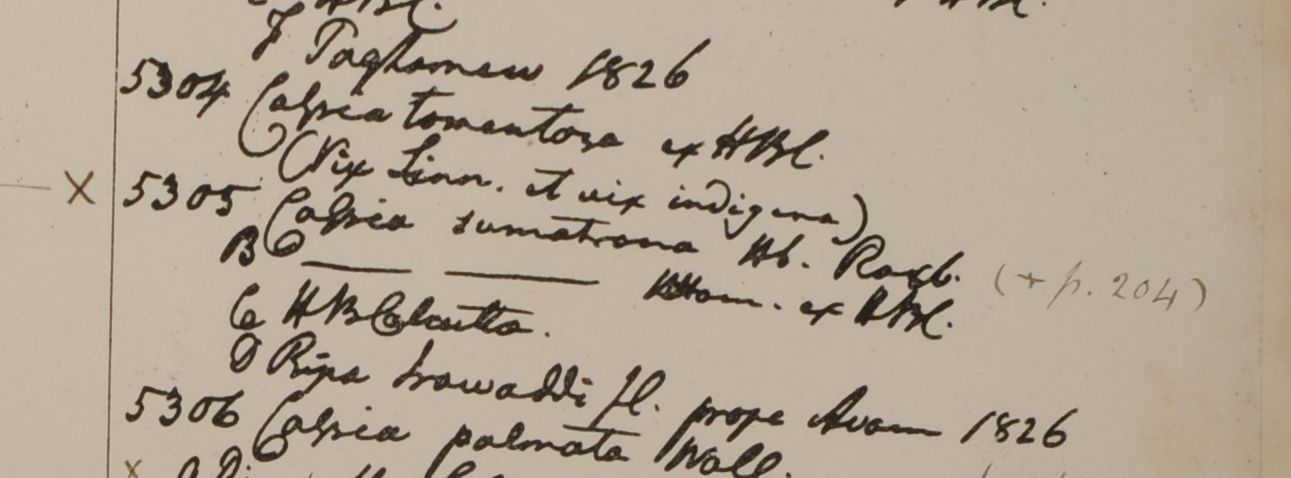 F Taglamew 1826
5304 Cassia tomentosa ex HBC.
(Vix Linn. et vix indigena)
X 5305 Cassia sumatrana Hb. Roxb. (+ p. 204)
B ——— ——— Ham. ex HBC.
C HBCalcutta.
D Ripa Irawaddi fl. prope Avam 1826
5306 Cassia palmata Wall.
x